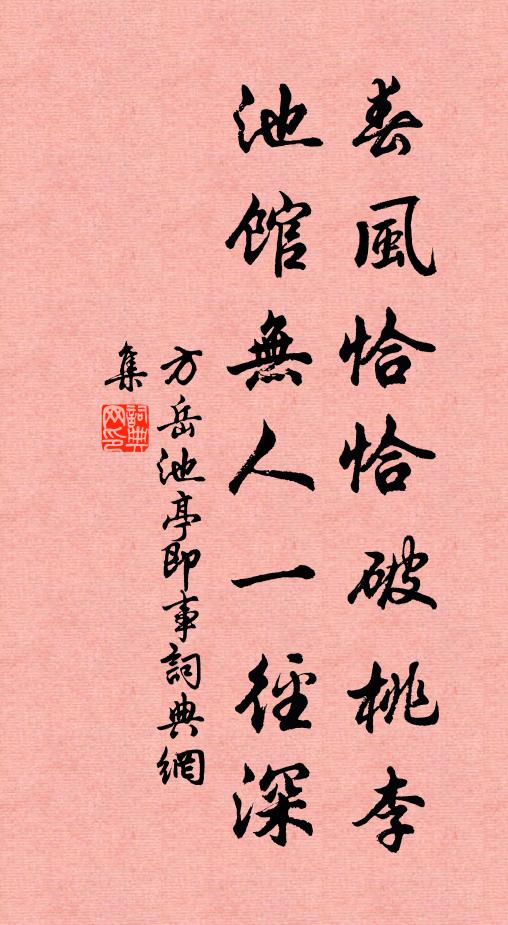 春風恰恰破桃李
池館無人一徑深
方岳池亭即事詞典網
集
詞典
网印